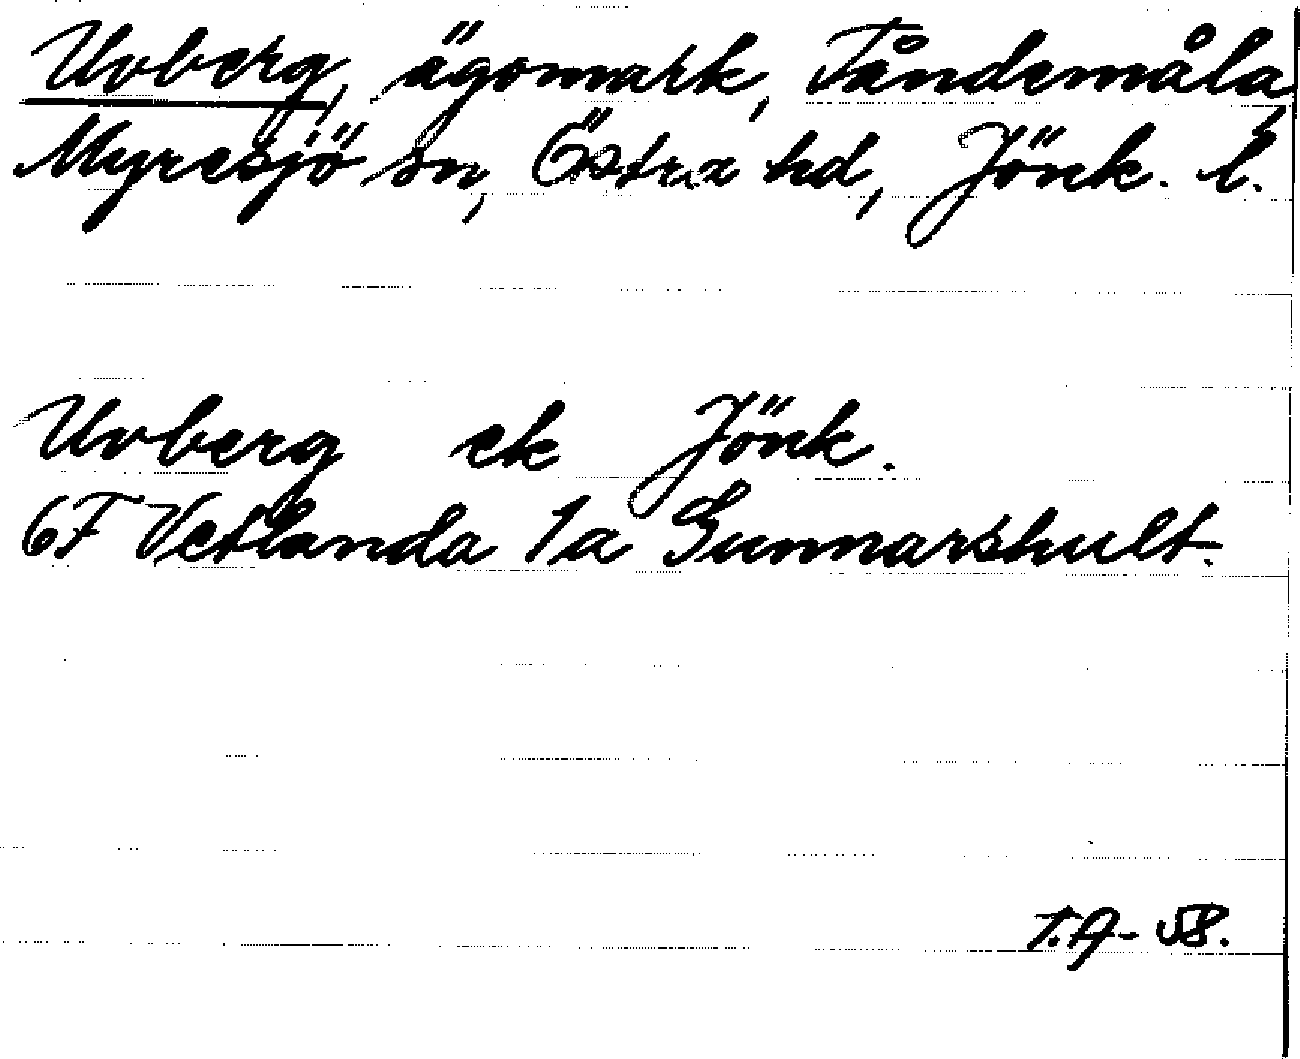 Uvberg, ägomark, Tåndemåla,
Myresjö sn, Östra hd, Jönk. l.
Uvberg ek Jönk.
6F Vetlanda 1a Gunnarshult.
T.A- 58.